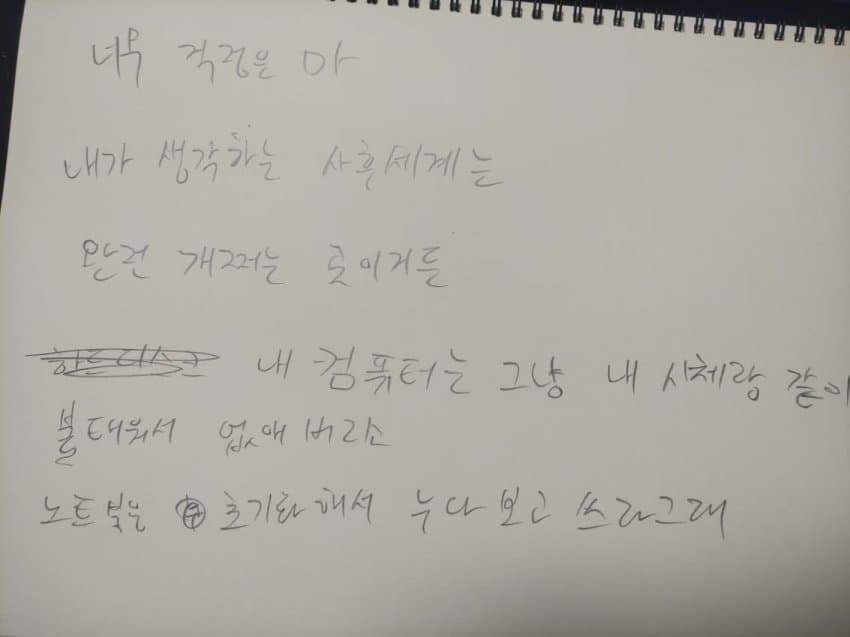 너무 걱정은 마
내가 생각하는 사후세계는
완전 개쩌는 곳이거든
하드디스크 내 컴퓨터는 그냥 내 시체랑 같이
불태워서 없애버리소
노트북은 초기화해서 누다 보고 쓰라그래